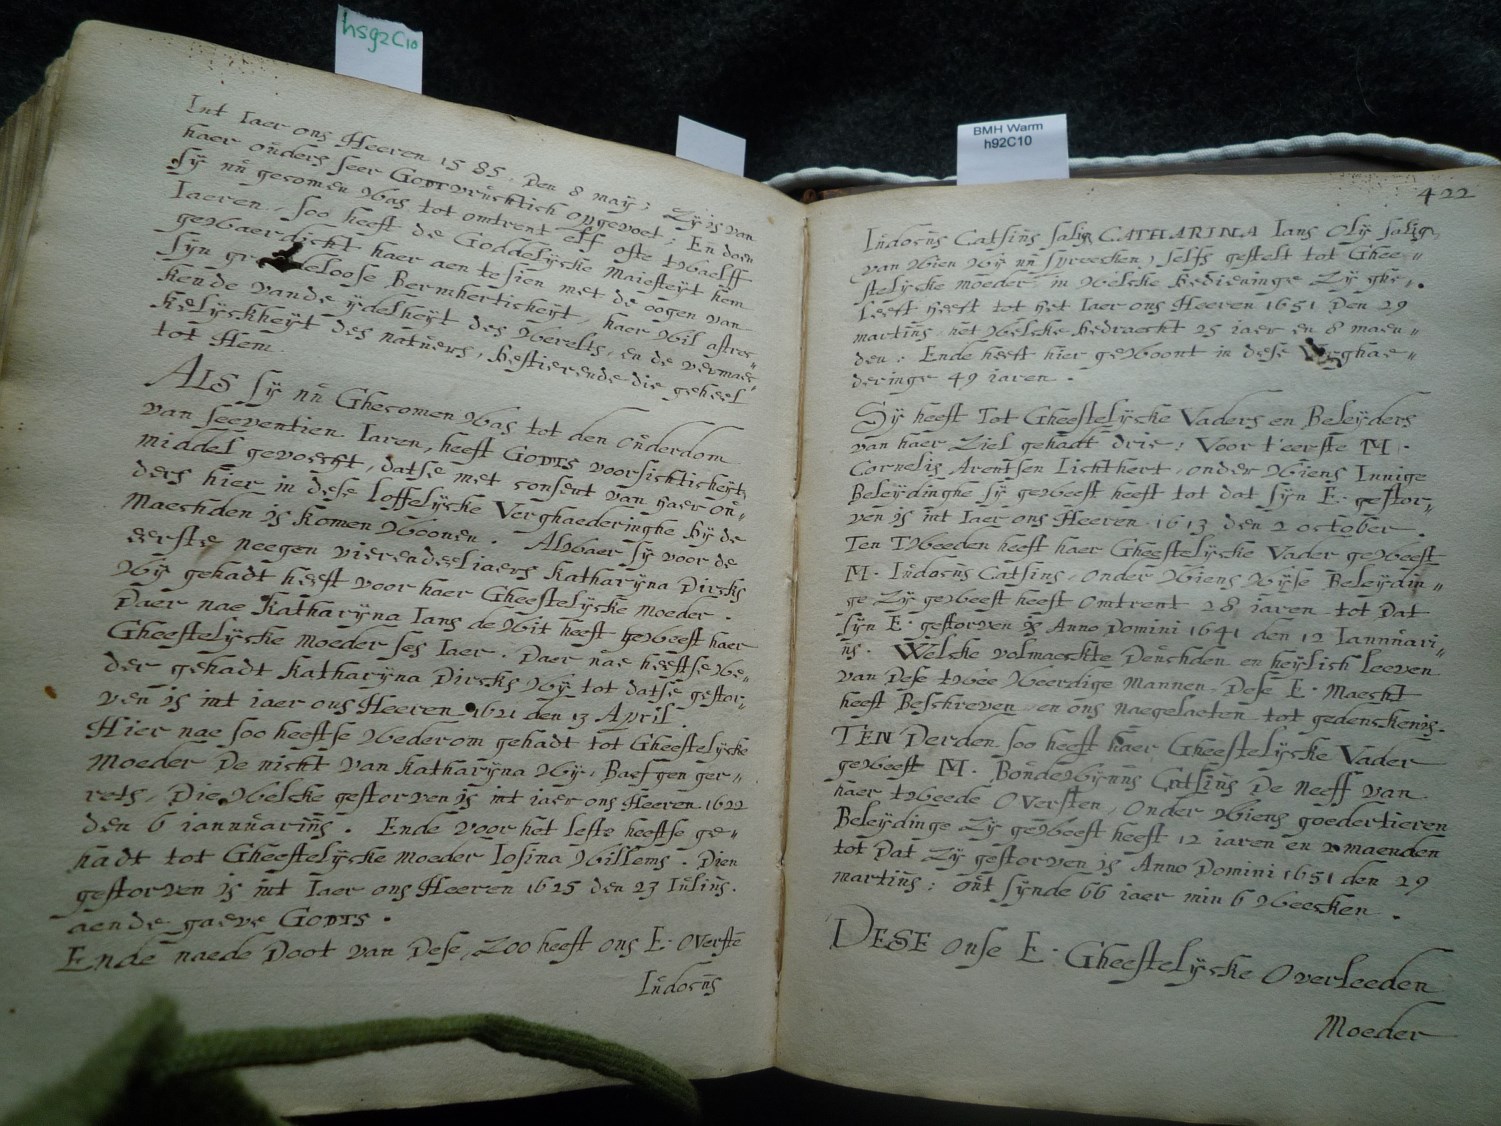 hsg2C10
BMH Warm
h92C10
Int Iaer ons Heeren 1585. Den 8 maÿ; Zÿ is van
haer ouders seer GODTvruchtich opgevoet; En doen
sÿ nu gecomen was tot omtrent elf ofte twaelff
Iaeren, soo heeft de Goddelÿcke Maiesteÿt hem
gewaerdicht haer aen te sien met de oogen van
sÿn deloose Bermhertickeÿt, haer wil aftrec-
kende vande ÿdelheÿt des werelts, en de vermae-
kelÿckheÿt des natuers, bestierende die geheel
tot Hem
ALS sÿ nu Ghecomen was tot den ouderdom
van seeventien Iaren, heeft GODTS voorsichticheÿt
middel gevoecht, datse met consent van haer ou-
ders hier in dese Loffelÿcke Verghaederinghe bÿ de
Maechden is komen woonen. Alwaer sÿ voor de
eerste neegen vierendeeliaers Katharÿna Dircks
Wÿ gehadt heeft voor haer Gheestelÿcke moeder.
Daer nae Katharÿna Ians de Wit heeft geweest haer
Gheestelÿcke moeder ses Iaer. Daer nae heeftse we-
der gehadt Katharÿna Dircks Wÿ tot datse gestor-
ven is int iaer ons Heeren 1621 den 13 April.
Hier nae soo heeftse wederom gehadt tot Gheestelÿcke
Moeder De nicht van Katharÿna Wÿ, Baefgen ger-
rets, Die welcke gestorven is int iaer ons Heeren 1622
den 6 iannuarius. Ende voor het leste heeftse ge-
hadt tot Gheestelÿcke moeder Iosina Willems. Dien
gestorven is int Iaer ons Heeren 1625 den 23 Iulius.
aende gaeve GODTS.
Ende naede Doot van Dese, Zoo heeft ons E. Overste
Iudocus
422
Iudocus Catsius salig CATHARINA Ians Olÿ salig,
van wien wÿ nu spreecken, selfs gestelt tot Ghee-
stelÿcke moeder in welcke bedieninge Zÿ ghe-
Leeft heeft tot het Iaer ons Heeren 1651 Den 29
martius, het welcke bedraecht 25 iaer en 8 maen-
den: Ende heeft hier gewoont in dese Verghae-
deringe 49 iaren.
Sÿ heeft Tot Gheestelÿcke Vaders en Beleÿders
van haer Ziel gehadt drie: Voor t'eerste M.
Cornelis Arentsen Lichthert, onder wiens Innige
Beleÿdinghe sÿ geweest heeft tot dat sÿn E. gestor-
ven is int Iaer ons Heeren 1613 den 2 october.
Ten Tweeden heeft haer Gheestelÿcke Vader geweest
M. Iudocus Catsius, onder wiens wÿse Beleÿdin-
ge Zÿ geweest heeft omtrent 28 iaren tot Dat
sÿn E. gestorven is Anno Domini 1641 den 12 Iannuari-
us. Welcke volmaeckte Deuchden en heÿlich Leeven
van Dese twee weerdige mannen Dese E. Maecht
heeft Beschreven en ons naegelaeten tot gedenckenis.
TEN Derden soo heeft haer Gheestelÿcke Vader
geweest M. Boudewÿnus Catsius De Neeff van
haer tweede Oversten, Onder wiens goedertieren
Beleÿdinge Zÿ geweest heeft 12 iaren en 2 maenden
tot Dat Zÿ gestorven is Anno Domini 1651 den 29
martius: out sÿnde 66 iaer min 6 weecken.
DESE onse E. Gheestelÿcke Overleeden
Moeder